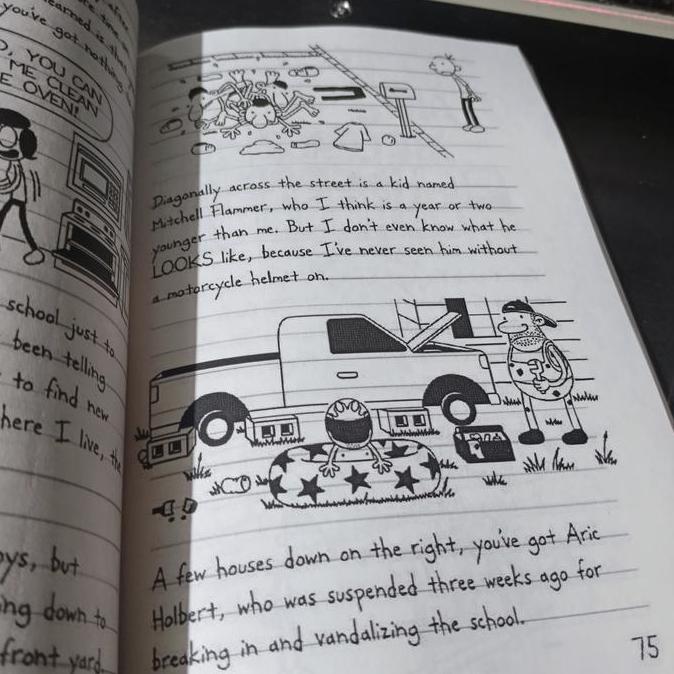 you've got nothing
YOU CAN
ME CLEAN
OVEN!
school just to
been telling
to find new
here I live, the
but
ing down to
front yard.
Diagonally across the street is a kid named
Mitchell Flammer, who I think is a year or two
younger than me. But I don't even know what he
LOOKS like, because I've never seen him without
a motorcycle helmet on.
A few houses down on the right, you've got Aric
Holbert, who was suspended three weeks ago for
breaking in and vandalizing the school.
75